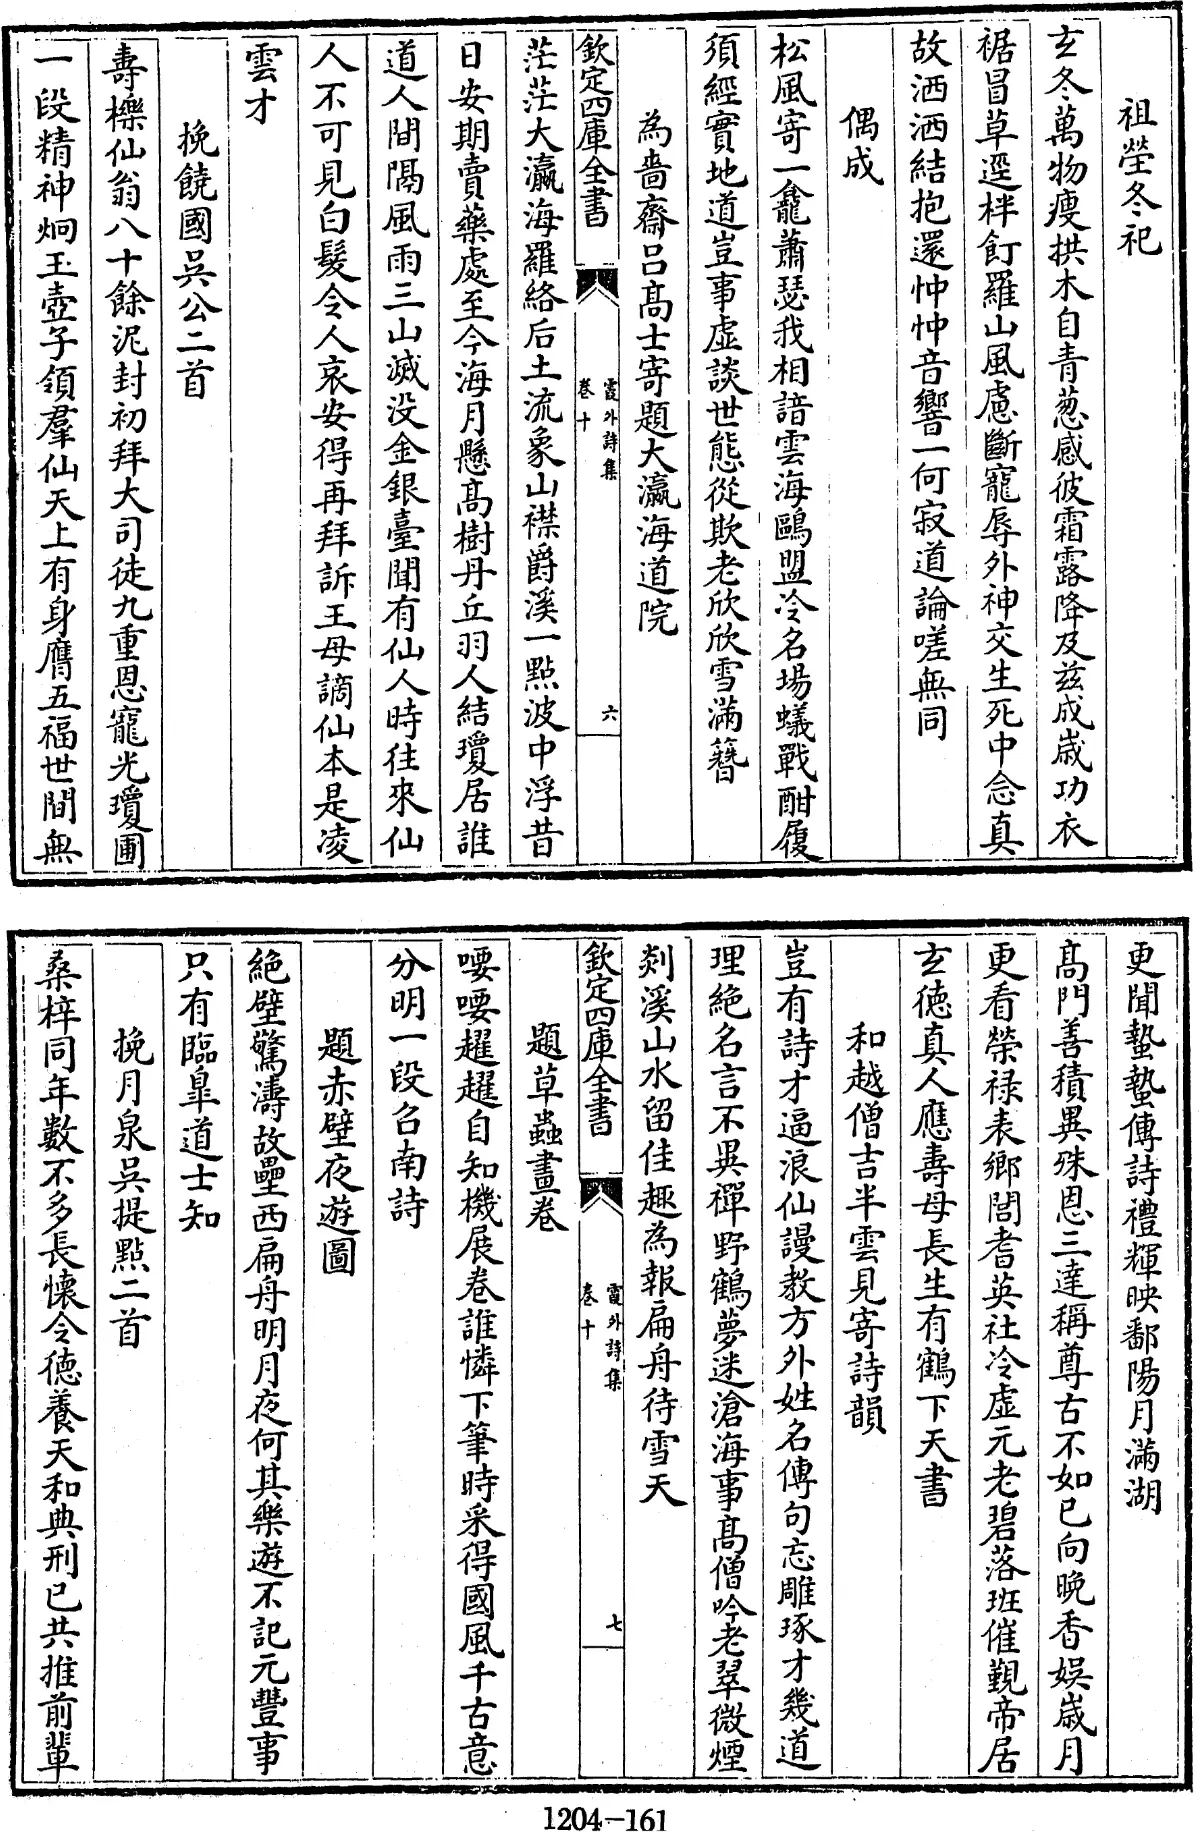 祖塋冬祀
玄冬萬物瘦拱木自青葱感彼霜露降及兹成歲功衣
裾冒草逕柈飣羅山風慮斷寵辱外神交生死中念真
故洒洒結抱還忡忡音響一何寂道論嗟無同
偶成
松風寄一龕蕭瑟我相諳雲海鷗盟冷名場蟻戰酣履
須經實地道豈事虚談世態從欺老欣欣雪滿簪
為嗇齋吕髙士寄題大瀛海道院
欽定四庫全書
霞外詩集
卷十
六
茫茫大瀛海羅絡后土流象山襟爵溪一點波中浮昔
日安期賣藥處至今海月懸髙樹丹丘羽人結瓊居誰
道人間隔風雨三山滅没金銀臺聞有仙人時往來仙
人不可見白髮令人哀安得再拜訴王母謫仙本是凌
雲才
挽饒國吳公二首
壽櫟仙翁八十餘泥封初拜大司徒九重恩寵光瓊圃
一段精神炯玉壺子領羣仙天上有身膺五福世間無
更聞蟄蟄傳詩禮輝映鄱陽月滿湖
髙門善積異殊恩三達稱尊古不如已向晚香娱歲月
更看榮禄表鄉閭耆英社冷虚元老碧落班催覲帝居
玄徳真人應壽母長生有鶴下天書
和越僧吉半雲見寄詩韻
豈有詩才逼浪仙謾教方外姓名傳句忘雕琢才幾道
理絶名言不異禪野鶴夢迷滄海事髙僧吟老翠微煙
剡溪山水留佳趣為報扁舟待雪天
欽定四庫全書
霞外詩集
卷十
七
題草蟲畫卷
喓喓趯趯自知機展卷誰憐下筆時采得國風千古意
分明一段召南詩
題赤壁夜遊圖
絶壁驚濤故壘西扁舟明月夜何其樂遊不記元豐事
只有臨臯道士知
挽月泉吳提點二首
桑梓同年數不多長懷令徳養天和典刑已共推前輩
1204-161